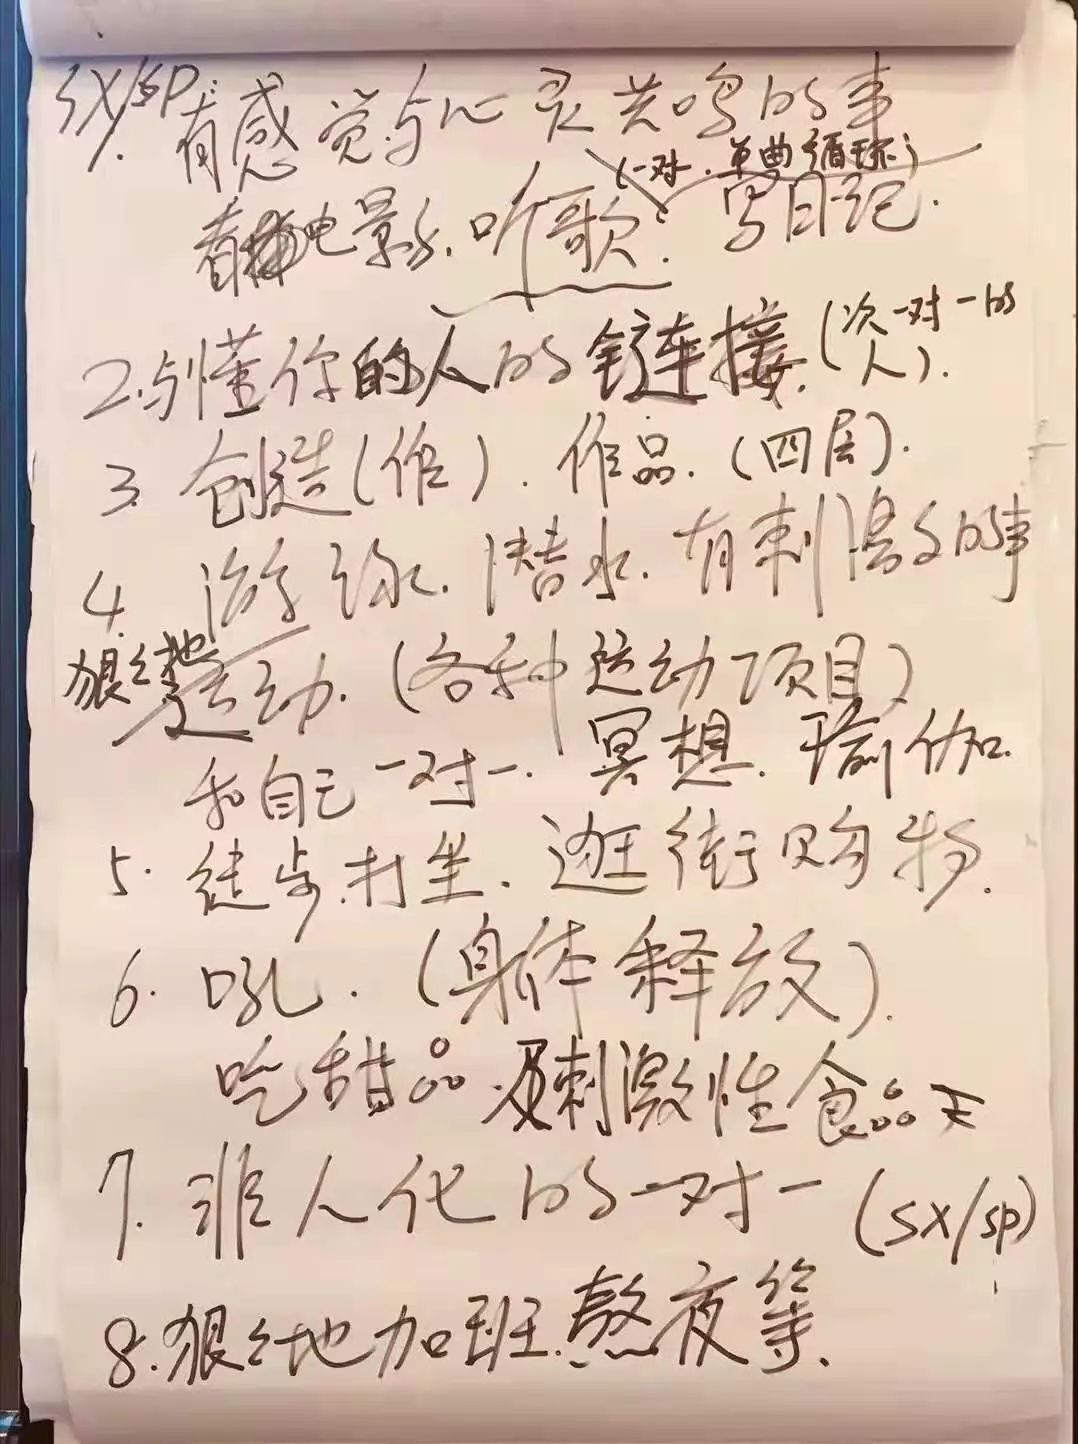 SX/SP
1. 有感觉与心灵共鸣的事
(一对一, 单曲循环)
看电影. 听歌. 写日记.
2. 与懂你的人的链接. (次一对一的人).
3. 创造(作). 作品. (四层).
4. 游泳. 潜水. 有刺激的事
狠狠地运动. (各种运动项目)
和自己一对一. 冥想. 瑜伽.
5. 徒步. 打坐. 逛街购物.
6. 吼. (身体释放).
吃甜品. 及刺激性食品
7. 非人化的一对一 (SX/SP)
8. 狠狠地加班. 熬夜等.